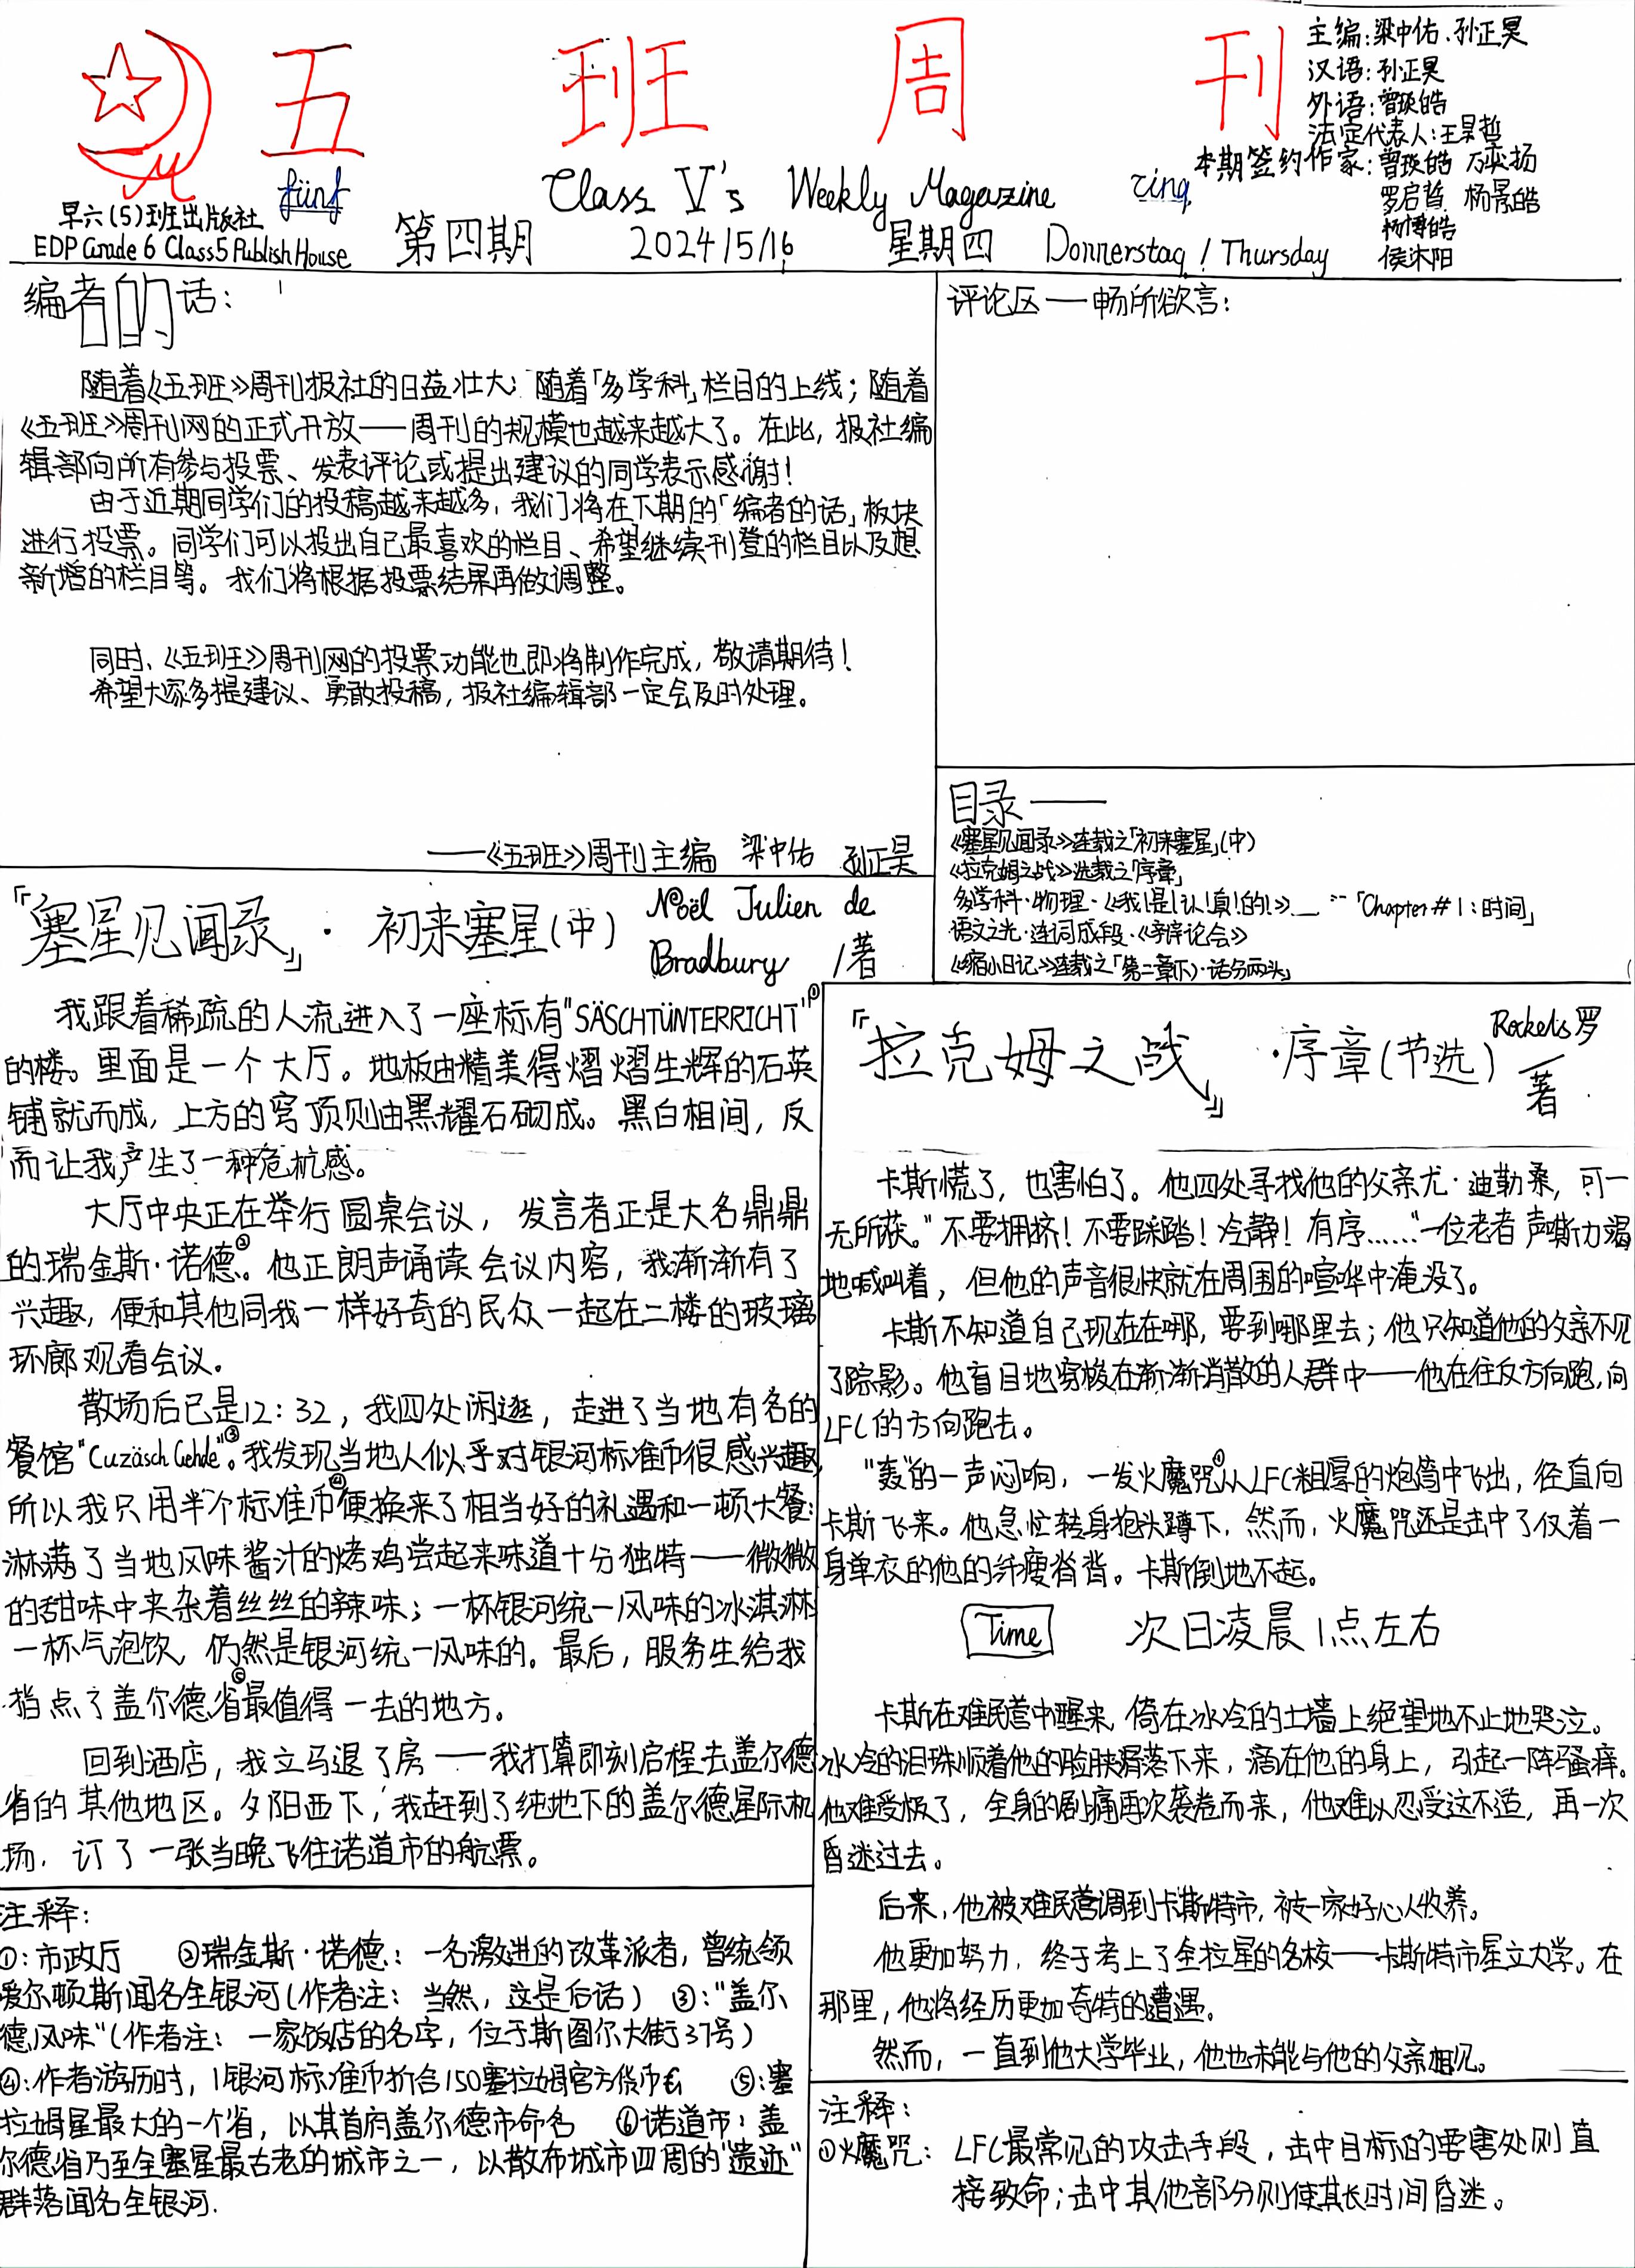 五班周刊
fünf
cinq
Class V's Weekly Magazine
早六(5)班出版社
EDP Grade 6 Class5 Publish House
第四期 2024/5/16 星期四 Donnerstag / Thursday
主编:梁中佑.孙正昊
汉语:孙正昊
外语:曾琰皓
法定代表人:王昊哲
本期签约作家:曾琰皓 万奕扬
罗启哲 杨景皓
杨博皓
侯沐阳
编者的话:
随着《五班》周刊报社的日益壮大;随着「多学科」栏目的上线;随着
《五班》周刊网的正式开放——周刊的规模也越来越大了。在此,报社编
辑部向所有参与投票、发表评论或提出建议的同学表示感谢!
由于近期同学们的投稿越来越多,我们将在下期的「编者的话」板块
进行投票。同学们可以投出自己最喜欢的栏目、希望继续刊登的栏目以及想
新增的栏目等。我们将根据投票结果再做调整。
同时,《五班》周刊网的投票功能也即将制作完成,敬请期待!
希望大家多提建议、勇敢投稿,报社编辑部一定会及时处理。
——《五班》周刊主编 梁中佑 孙正昊
评论区——畅所欲言:
目录——
《塞星见闻录》连载之「初来塞星」(中)
《拉克姆之战》选载之「序章」
多学科·物理·《我!是!认!真!的!》——「Chapter#1:时间」
语文之光·连词成段·《辩论会》
《缩小日记》连载之「第二章(下)·话分两头」
『塞星见闻录』·初来塞星(中) Noël Julien de
Bradbury /著
我跟着稀疏的人流进入了一座标有"SÄSCHTÜNTERRICHT"①
的楼。里面是一个大厅。地板由精美得熠熠生辉的石英
铺就而成,上方的穹顶则由黑耀石砌成。黑白相间,反
而让我产生了一种危机感。
大厅中央正在举行圆桌会议,发言者正是大名鼎鼎
的瑞金斯·诺德②。他正朗声诵读会议内容,我渐渐有了
兴趣,便和其他同我一样好奇的民众一起在二楼的玻璃
环廊观看会议。
散场后已是12:32,我四处闲逛,走进了当地有名的
餐馆"Cuzäsch Gehde"③。我发现当地人似乎对银河标准币很感兴趣,
所以我只用半个标准币④便换来了相当好的礼遇和一顿大餐:
淋满了当地风味酱汁的烤鸡尝起来味道十分独特——微微
的甜味中夹杂着丝丝的辣味;一杯银河统一风味的冰淇淋
一杯气泡饮,仍然是银河统一风味的。最后,服务生给我
指点了盖尔德省⑥最值得一去的地方。
回到酒店,我立马退了房——我打算即刻启程去盖尔德
省的其他地区。夕阳西下,我赶到了纯地下的盖尔德星际机
场,订了一张当晚飞往诺道市的航票。
注释:
①:市政厅 ②瑞金斯·诺德:一名激进的改革派者,曾统领
爱尔顿斯闻名全银河(作者注:当然,这是后话) ③:"盖尔
德风味"(作者注:一家饭店的名字,位于斯图尔大街37号)
④:作者游历时,1银河标准币折合150塞拉姆官方货币 ⑤:塞
拉姆星最大的一个省,以其首府盖尔德市命名 ⑥诺道市:盖
尔德省乃至全塞星最古老的城市之一,以散布城市四周的"遗迹"
群落闻名全银河.
『拉克姆之战』·序章(节选) Rockets罗
/著
卡斯慌了,也害怕了。他四处寻找他的父亲尤·迪勒桑,可一
无所获。"不要拥挤!不要踩踏!冷静!有序……"一位老者声嘶力竭
地喊叫着,但他的声音很快就在周围的喧哗中淹没了。
卡斯不知道自己现在在哪,要到哪里去;他只知道他的父亲不见
了踪影。他盲目地穿梭在渐渐消散的人群中——他在往反方向跑,向
LFC的方向跑去。
"轰"的一声闷响,一发火魔咒①从LFC粗厚的炮筒中飞出,径直向
卡斯飞来。他急忙转身抱头蹲下,然而,火魔咒还是击中了仅着一
身单衣的他的纤瘦脊背。卡斯倒地不起。
Time 次日凌晨1点左右
卡斯在难民营中醒来,倚在冰冷的土墙上绝望地不止地哭泣。
冰冷的泪珠顺着他的脸颊滑落下来,滴在他的身上,引起一阵骚痒。
他难受极了,全身的剧痛再次袭卷而来,他难以忍受这不适,再一次
昏迷过去。
后来,他被难民营调到卡斯特市,被一家好心人收养。
他更加努力,终于考上了全拉星的名校——卡斯特市星立大学。在
那里,他将经历更加奇特的遭遇。
然而,一直到他大学毕业,他也未能与他的父亲相见。
注释:
①火魔咒:LFC最常见的攻击手段,击中目标的要害处则直
接致命;击中其他部分则使其长时间昏迷。